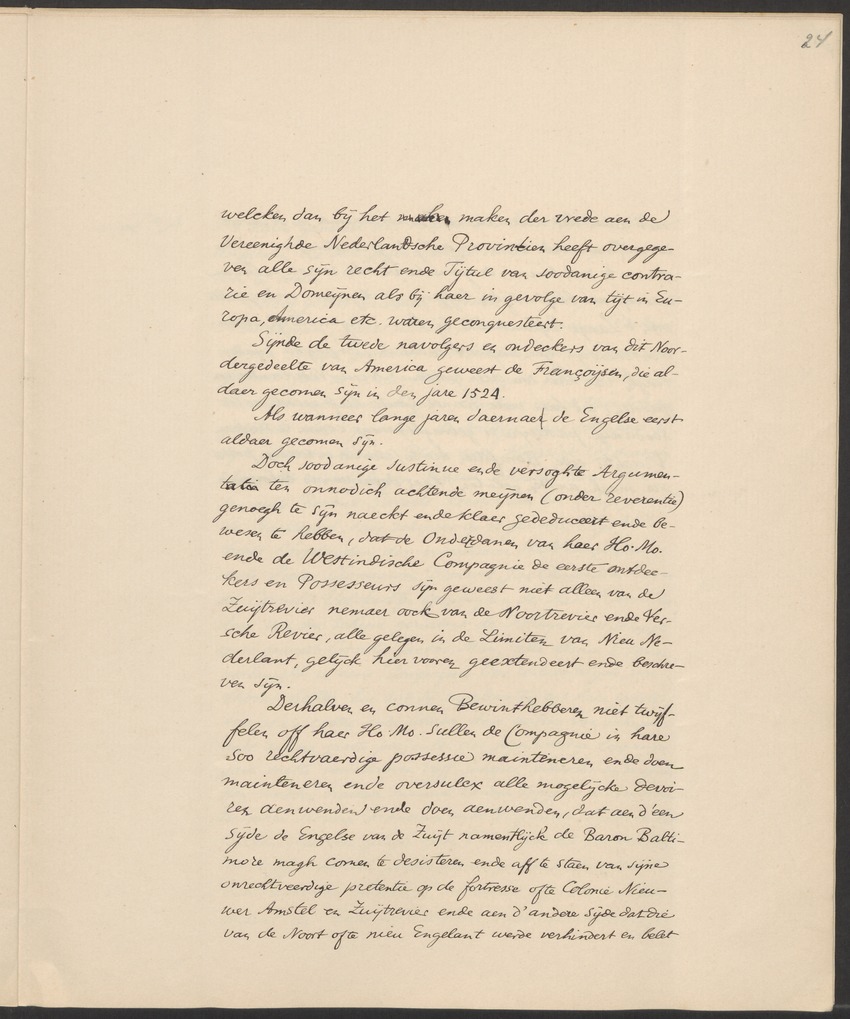 24
welcken dan bij het maken der vrede aen de
Vereenighde Nederlandsche Provintien heeft overgege-
ven alle sijn recht ende Tijtul van soodanige contra-
rie en Domeijnen als bij haer in gevolge van tijt in Eu-
ropa, America etc. waren geconquesteert.
Sijnde de twede navolgers en ondeckers van dit Noor-
dergedeelte van America geweest de Françoijsen, die al-
daer gecomen sijn in den jare 1524.
Als wanneer lange jaren daernaer de Engelse eerst
aldaer gecomen sijn.
Doch soodanige sustinue ende versoghte Argumen-
tatie ten onnodich achtende meijnen (onder reverentie)
genoegh te sijn naeckt ende klaer gededuceert ende be-
wesen te hebben, dat de Onderdanen van haer Ho. Mo.
ende de Westindische Compagnie de eerste ontdec-
kers en Possesseurs sijn geweest niet alleen van de
Zuijtrevier nemaer oock van de Noortrevier ende Ver-
sche Revier, alle gelegen in de Limiten van Nieu Ne-
derlant, gelijck hier vooren geextendeert ende beschre-
ven sijn.
Derhalven en connen Bewinthebberen niet twijf-
felen off haer Ho. Mo. sullen de Compagnie in hare
soo rechtvaerdige possessie mainteneren ende doen
mainteneren ende oversulcx alle mogelijcke devoi-
ren aenwenden ende doen aenwenden, dat aen d'een
sijde de Engelse van de Zuijt namentlijck de Baron Balti-
more magh comen te desisteren ende aff te staen van sijne
onrechtveerdige pretentie op de fortresse ofte Colonie Nieu-
wer Amstel en Zuijtrevier ende aen d'andere sijde dat die
van de Noort ofte nieu Engelant werde verhindert en belet